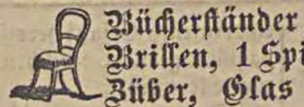 Bücherständer
Brillen, 1 Spi
Züber, Glas